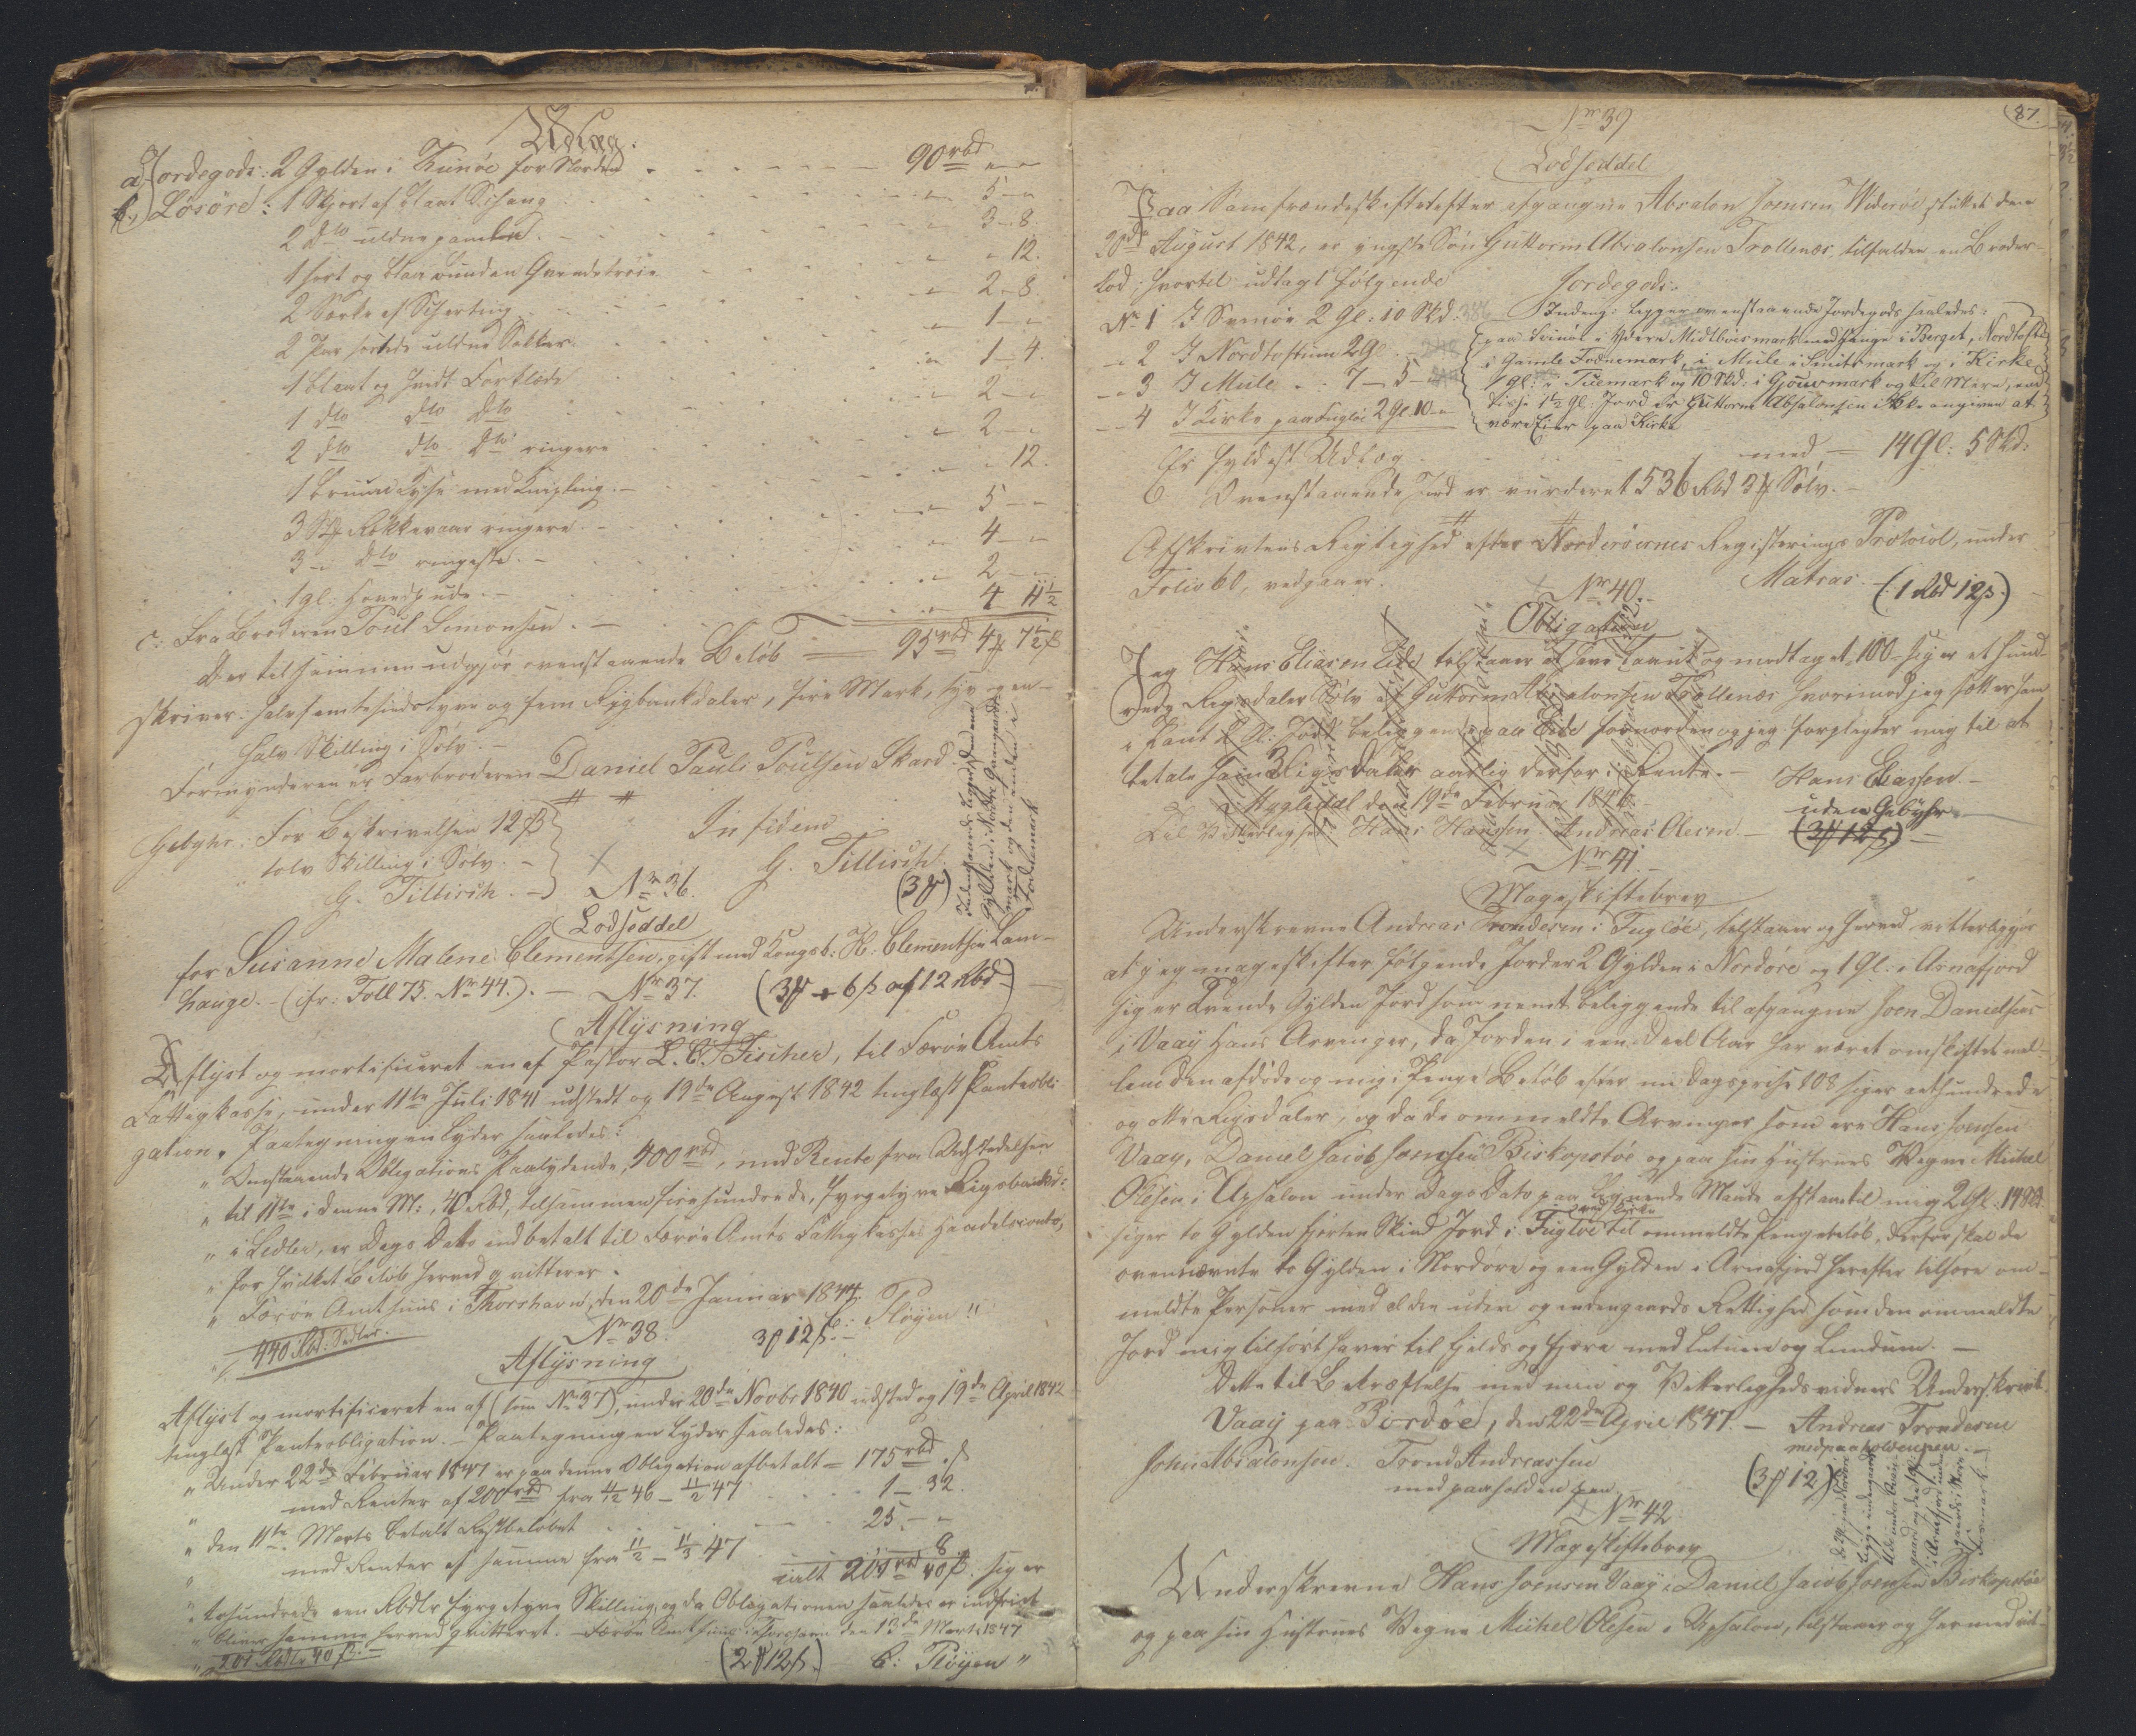 Udlæg.
a, Jordegods: 2 Gylden i Kunöe for Norden - - - 90 rbd " "
b, Lösöre: 1 Skjort af blaat Sitsang - - - " 5 - "
2 Dto uldne gamle - - - " 3 - 8.
1 sort og blaa bunden Qvindetröie - - - " " 12.
2 Særke af Schirting - - - " 2 - 8.
2 Par sortede uldne Sokker - - - " 1 - "
1 blaat og hvidt Forklæde - - - " 1 - 4.
1 Dto Dto Dto - - - " 2 - "
2 Dto Dto Dto ringere - - - " 2 - "
1 bruun Kyse med Knipling. - - - " " 12.
3 Stk Rokkevaar ringere. - - - " 5 - "
3 " Dto ringeste. - - - " 4 - "
1 gl. Hovedpude. - - - " 2 - "
c: Fra Broderen Poul Simonsen. - - - " 4 11½
Der tilsammen udgjör ovenstaaende Belöb = 95 rbd 4 ₰ 7½ ß
skriver: halvfemtesindstyve og fem Rigsbankdaler, fire Mark, syv og en
halv Skilling i Sölv. -
Formynderen er Farbroderen Daniel Pauli Poulsen Skard.
Gebyhr: For Beskrivelsen 12 ß
tolv Skilling i Sölv. -
G. Tillisch. -
In fidem
G. Tillisch.
(3 ₰)
Nr 36.
Lodseddel
for Susanne Malene Clementsen, gift med Kongsb: H. Clementsen Lam-
hauge. - (cfr: Foll 75. Nr 44.). - Nr 37. (3 ₰ + 6 ß af 12 Rbd.)
Aflysning
Aflyst og mortificeret en af Pastor L. C. Fischer, til Færöe Amts
Fattigkasse, under 11te Juli 1841 udstedt og 19de August 1842 tinglæst Panteobli-
gation. Paategningen lyder saaledes:
" Omstaaende Obligations Paalydende, 400 rbd, med Rente fra Udstedelsen
" til 11te i denne M:, 40 Rbd, tilsammen firehundrede, fyrgetyve Rigsbankd:
" i Sedler, er Dags Dato indbetalt til Færöe Amts Fattigkasses Handelsconto,
" for hvilket Belöb herved qvitteres.
" Færöe Amthuus i Thorshavn, den 20de Januar 1844.
" 440 Rbd: Sedler. Nr 38. 3 ₰ 12 ß. - C: Plöyen "
Aflysning
Aflyst og mortificeret en af (som Nr 37), under 20de Novbr 1840 udsted og 19de April 1842
tinglæst Panteobligation. - Paategningen lyder saaledes:
" Under 22de Februar 1847 er paa denne Obligation afbetalt = 175 rbd " ß
" med Renter af 200 rbd fra 11/12 46 - 11/2 47 1 - 32.
" den 11te Marts betalt Restbelöbet 25. - "
" med Renter af samme fra 11/2 - 11/3 47 8.
ialt 201 rbd 40 ß. siger
" tohundrede een Rbdlr fyrgetyve Skilling, og da Obligationen saaledes er indfriet
" bliver samme herved qvitteret. - Færöe Amthuus i Thorshavn den 13de Marts 1847
" 201 Rbdlr 40 ß. - (2 ₰ 12 ß.) C: Plöyen "
87.
Nr 39
Lodseddel
Paa Samfrændeskiftet efter afgangne Absalon Joensen Wideröe sluttet den
20de August 1842, er yngste Sön Guttorm Absalonsen Trollenæs tilfalden en Broder-
lod, hvortil udlagt fölgende Jordegods.
Nr 1 I Svinöe 2 Gl: 10 Skd:
" 2 I Nordtoftum 2 Gl
" 3 I Mule - - 7 - 5 -
" 4 I Kirke paa Fuglöe 2 Gl. 10 -
Indeng: ligger ovenstaaende Jordegods saaledes:
paa Svinöe i Ydere Midtböesmark med Hauge i Berget, Nordtofte
i Gamle Fodnemark, i Mule i Smittemark og i Kirke
1 gl: i Tuemark og 10 Skd: i Gjöuvmark og til Mere, end
disse 1½ gl. Jord er Guttorm Absalonsen ikke angiven at
være Eier paa Kirke
Er fyldest Udlæg med - 14 Gl: 5 Skd:
Ovenstaaende Jord er vurderet 536 Rbd 3 ₰ Sölv. -
Afskriftens Rigtighed efter Norderöernes Registerings Protocol, under
Folio 60, vedgaaer. Matras. - (1 Rbd 12 ß.)
Nr 40. -
Obligation
Jeg Hans Eliasen Eide tilstaaer at have laant og modtaget 100 siger et hund-
rede Rigsdaler Sölv af Guttorm Absalonsen Trollenæs hvorimod jeg sætter ham
i Pant 2 Gl: Jord beliggende paa Eide fornorden og jeg forpligter mig til at
betale ham 3 Rigsdaler aarlig derfor i Rente. - Hans Eliassen. -
Mygledal den 19de Februar 1846. uden Gebyhr
Til Vitterlighed: Hans Hansen. Andreas Olesen. - (3 ₰ 12 ß)
Nr 41. -
Mageskiftebrev
Underskrevne Andreas Trondesen i Fuglöe, tilstaaer og herved vitterliggjör
at jeg mageskifter fölgende Jorder 2 Gylden i Nordöre og 1 Gl. i Arnafjord
siger Trende Gylden Jord som nemt beliggende til afgangne Joen Danielsens
i Vaaij Hans Arvinger, da Jorden i een Deel Aar har været omskiftet mel-
lem den afdöde og mig, i Penge Belöb efter nu Dagsprise 108 siger eethundrede
og otte Rigsdaler, og da de ommeldte Arvinger som ere Hans Joensen
Vaaij, Daniel Jacob Joensen Biskopstöe og paa sin Hustrues Vegne Michel
Olesen i Upsalon under Dags Dato paa lignende Maade afstaae til mig 2 Gl. 14 Skd.
siger to Gylden fjorten Skind Jord i Fuglöe ved Kirke til ommeldte Pengebelöb, derfor skal de
ovennævnte to Gylden i Nordöre og een Gylden i Arnafjord herefter tilhöre om-
meldte Personer med al den uden og indengaards Rettighed som den ommeldte
Jord mig tilhört haver til Fjelds og Fjære med Lutum og Lundum. -
Dette til Bekræftelse med min og Vitterlighedsvidners Underskrivt.
Vaaij paa Bordöe, den 22de April 1847. - Andreas Trondesen
med paaholden pen. -
John Absalonsen. Trond Andreassen
med paaholden pen. (3 ₰ 12)
Nr 42
Mageskiftebrev
Underskrevne Hans Joensen Vaaij, Daniel Jacob Joensen Biskopstöe
og paa sin Hustrues Vegne Michel Olesen i Upsalon, tilstaaer og hermed vit-